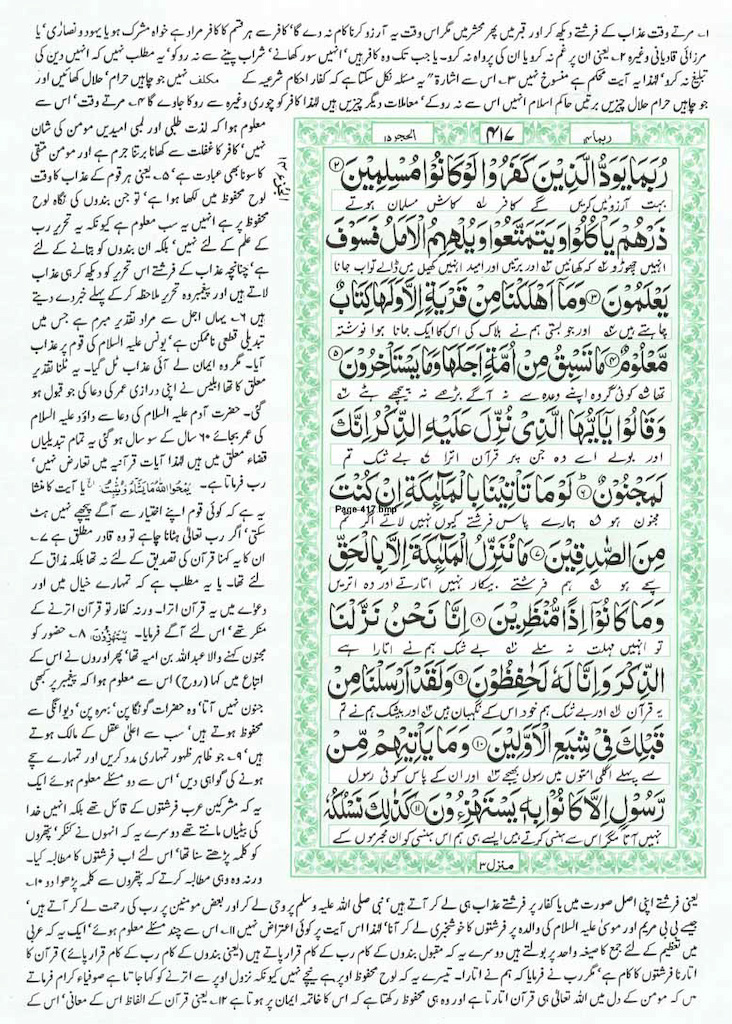 ۱۔ مرتے وقت عذاب کے فرشتے دیکھ کر اور قبر میں پھر محشر میں مگر اس وقت یہ آرزو کرنا کام نہ دے گا' کافر سے ہر قسم کا کافر مراد ہے خواہ مشرک ہو یا یہود و نصاریٰ' یا
مرزائی قادیانی وغیرہ ۲۔ یعنی ان پر غم نہ کرو یا ان کی پرواہ نہ کرو۔ یا جب تک وہ کافر ہیں' انہیں سور کھانے' شراب پینے سے نہ روکو' یہ مطلب نہیں کہ انہیں دین کی
تبلیغ نہ کرو' لہٰذا یہ آیت محکم ہے منسوخ نہیں ۳۔ اس سے اشارۃ" یہ مسئلہ نکل سکتا ہے کہ کفار احکام شرعیہ کے مکلف نہیں جو چاہیں حرام' حلال کھائیں اور
جو چاہیں حرام حلال چیزیں برتیں حاکم اسلام انہیں اس سے نہ روکے' معاملات دیگر چیزیں ہیں لہٰذا کافر کو چوری وغیرہ سے روکا جاوے گا ۴۔ مرتے وقت' اس سے
معلوم ہوا کہ لذت طلبی اور لمبی امیدیں مومن کی شان
نہیں' کافر کا غفلت سے کھانا برتنا جرم ہے اور مومن متقی
کا سونا بھی عبادت ہے' ۵۔ یعنی ہر قوم کے عذاب کا وقت
لوح محفوظ میں لکھا ہوا ہے' تو جن بندوں کی نگاہ لوح
محفوظ پر ہے انہیں یہ سب معلوم ہے کیونکہ یہ تحریر رب
کے علم کے لئے نہیں' بلکہ ان بندوں کو بتانے کے لئے
ہے' چنانچہ عذاب کے فرشتے اس تحریر کو دیکھ کر ہی عذاب
لاتے ہیں اور پیغمبر وہ تحریر ملاحظہ کر کے پہلے خبر دے دیتے
ہیں ۶۔ یہاں اجل سے مراد تقدیر مبرم ہے جس میں
تبدیلی قطعی ناممکن ہے' یونس علیہ السلام کی قوم پر عذاب
آیا۔ مگر وہ ایمان لے آئی عذاب ٹل گیا۔ یہ ٹلنا تقدیر
معلق کا تھا ابلیس نے اپنی درازی عمر کی دعا کی جو قبول ہو
گئی۔ حضرت آدم علیہ السلام کی دعا سے داؤد علیہ السلام
کی عمر بجائے ۶۰ سال کے سو سال ہو گئی یہ تمام تبدیلیاں
قضاء معلق میں ہیں لہٰذا آیات قرآنیہ میں تعارض نہیں'
رب فرماتا ہے۔ یَمْحُوا اللّٰہُ مَا یَشَآءُ وَیُثْبِتُ یا آیت کا منشا
یہ ہے کہ کوئی قوم اپنے اختیار سے آگے پیچھے نہیں ہٹ
سکتی' اگر رب تعالیٰ ہٹانا چاہے تو وہ قادر مطلق ہے ۷۔
ان کا یہ کہنا قرآن کی تصدیق کے لئے نہ تھا بلکہ مذاق کے
لئے تھا۔ یا یہ مطلب ہے کہ تمہارے خیال میں اور
دعوے میں یہ قرآن اترا۔ ورنہ کفار تو قرآن اترنے کے
منکر تھے' اس لئے آگے فرمایا۔ یَسْتَهْزِءُوْنَ ۸۔ حضور کو
مجنون کہنے والا عبداللہ بن امیہ تھا' پھر اوروں نے اس کے
اتباع میں کہا (روح) اس سے معلوم ہوا کہ پیغمبر پر کبھی
جنون نہیں آتا' وہ حضرات گونگا پن' بہرہ پن' دیوانگی سے
محفوظ ہوتے ہیں' سب سے اعلیٰ عقل کے مالک ہوتے
ہیں' ۹۔ جو ظاہر ظہور تمہاری مدد کریں اور تمہارے سچے
ہونے کی گواہی دیں' اس سے دو مسئلے معلوم ہوئے ایک
یہ کہ مشرکین عرب فرشتوں کے قائل تھے بلکہ انہیں خدا
کی بیٹیاں مانتے تھے دوسرے یہ کہ انہوں نے کنکر' پتھروں
کو کلمہ پڑھتے سنا تھا' اس لئے اب فرشتوں کا مطالبہ کیا۔
ورنہ وہ وہی مطالبہ کرتے کہ پتھروں سے کلمہ پڑھوا دو ۱۰۔
ربما ۱۴
۴۱۷
الحجر ۱۵
رُبَمَا یَوَدُّ الَّذِیْنَ كَفَرُوْا لَوْ كَانُوْا مُسْلِمِیْنَ ۲
بہت آرزوئیں کریں گے کافر کاش مسلمان ہوتے
ذَرْهُمْ یَاْكُلُوْا وَ یَتَمَتَّعُوْا وَ یُلْهِهِمُ الْاَمَلُ فَسَوْفَ
انہیں چھوڑو کہ کھائیں اور برتیں اور امید انہیں کھیل میں ڈالے تو اب جانا
یَعْلَمُوْنَ ۳ وَ مَاۤ اَهْلَكْنَا مِنْ قَرْیَةٍ اِلَّا وَ لَهَا كِتَابٌ
چاہتے ہیں اور جو بستی ہم نے ہلاک کی اس کا ایک جانا ہوا نوشتہ
مَّعْلُوْمٌ ۴ مَا تَسْبِقُ مِنْ اُمَّةٍ اَجَلَهَا وَ مَا یَسْتَاْخِرُوْنَ ۵
تھا کوئی گروہ اپنے وعدہ سے نہ آگے بڑھے نہ پیچھے ہٹے
وَ قَالُوْا یٰۤاَیُّهَا الَّذِیْ نُزِّلَ عَلَیْهِ الذِّكْرُ اِنَّكَ
اور بولے اے وہ جن پر قرآن اترا بے شک تم
لَمَجْنُوْنٌ ۶ لَوْ مَا تَاْتِیْنَا بِالْمَلٰٓىٕكَةِ اِنْ كُنْتَ
Page-417.bmp
مجنون ہو ہمارے پاس فرشتے کیوں نہیں لاتے اگر تم
مِنَ الصّٰدِقِیْنَ ۷ مَا نُنَزِّلُ الْمَلٰٓىٕكَةَ اِلَّا بِالْحَقِّ
سچے ہو ہم فرشتے بیکار نہیں اتارتے اور وہ اتریں
وَ مَا كَانُوْۤا اِذًا مُّنْظَرِیْنَ ۸ اِنَّا نَحْنُ نَزَّلْنَا
تو انہیں مہلت نہ ملے بے شک ہم نے اتارا ہے
الذِّكْرَ وَ اِنَّا لَهٗ لَحٰفِظُوْنَ ۹ وَ لَقَدْ اَرْسَلْنَا مِنْ
یہ قرآن اور بے شک ہم خود اس کے نگہبان ہیں اور بیشک ہم نے تم
قَبْلِكَ فِیْ شِیَعِ الْاَوَّلِیْنَ ۱۰ وَ مَا یَاْتِیْهِمْ مِّنْ
سے پہلے اگلی امتوں میں رسول بھیجے اور ان کے پاس کوئی رسول
رَّسُوْلٍ اِلَّا كَانُوْا بِهٖ یَسْتَهْزِءُوْنَ ۱۱ كَذٰلِكَ نَسْلُكُهٗ
نہیں آتا مگر اس سے ہنسی کرتے ہیں ایسے ہی ہم اس ہنسی کو ان مجرموں کے
منزل ۳
یعنی فرشتے اپنی اصل صورت میں یا کفار پر فرشتے عذاب ہی لے کر آتے ہیں' نبی صلی اللہ علیہ وسلم پر وحی لے کر اور بعض مومنین پر رب کی رحمت لے کر آتے ہیں'
جیسے بی بی مریم اور موسیٰ علیہ السلام کی والدہ پر فرشتوں کا خوشخبری لے کر آنا' لہٰذا اس آیت پر کوئی اعتراض نہیں ۱۱۔ اس سے چند مسئلے معلوم ہوئے' ایک یہ کہ عربی
میں تعظیم کے لئے جمع کا صیغہ واحد پر بولتے ہیں دوسرے یہ کہ مقبول بندوں کے کام رب کے کام قرار پاتے ہیں (یعنی بندوں کے کام رب کے کام قرار پائے) قرآن کا
اتارنا فرشتوں کا کام ہے' مگر رب نے فرمایا کہ ہم نے اتارا۔ تیسرے یہ کہ لوح محفوظ اوپر ہے نیچے نہیں کیونکہ نزول اوپر سے اترنے کو کہا جاتا ہے صوفیاء کرام فرماتے
ہیں کہ مومن کے دل میں اللہ تعالیٰ ہی قرآن اتارتا ہے اور وہ ہی محفوظ رکھتا ہے کہ اس کا خاتمہ ایمان پر ہوتا ہے ۱۲۔ یعنی قرآن کے الفاظ اس کے معانی' اس کے